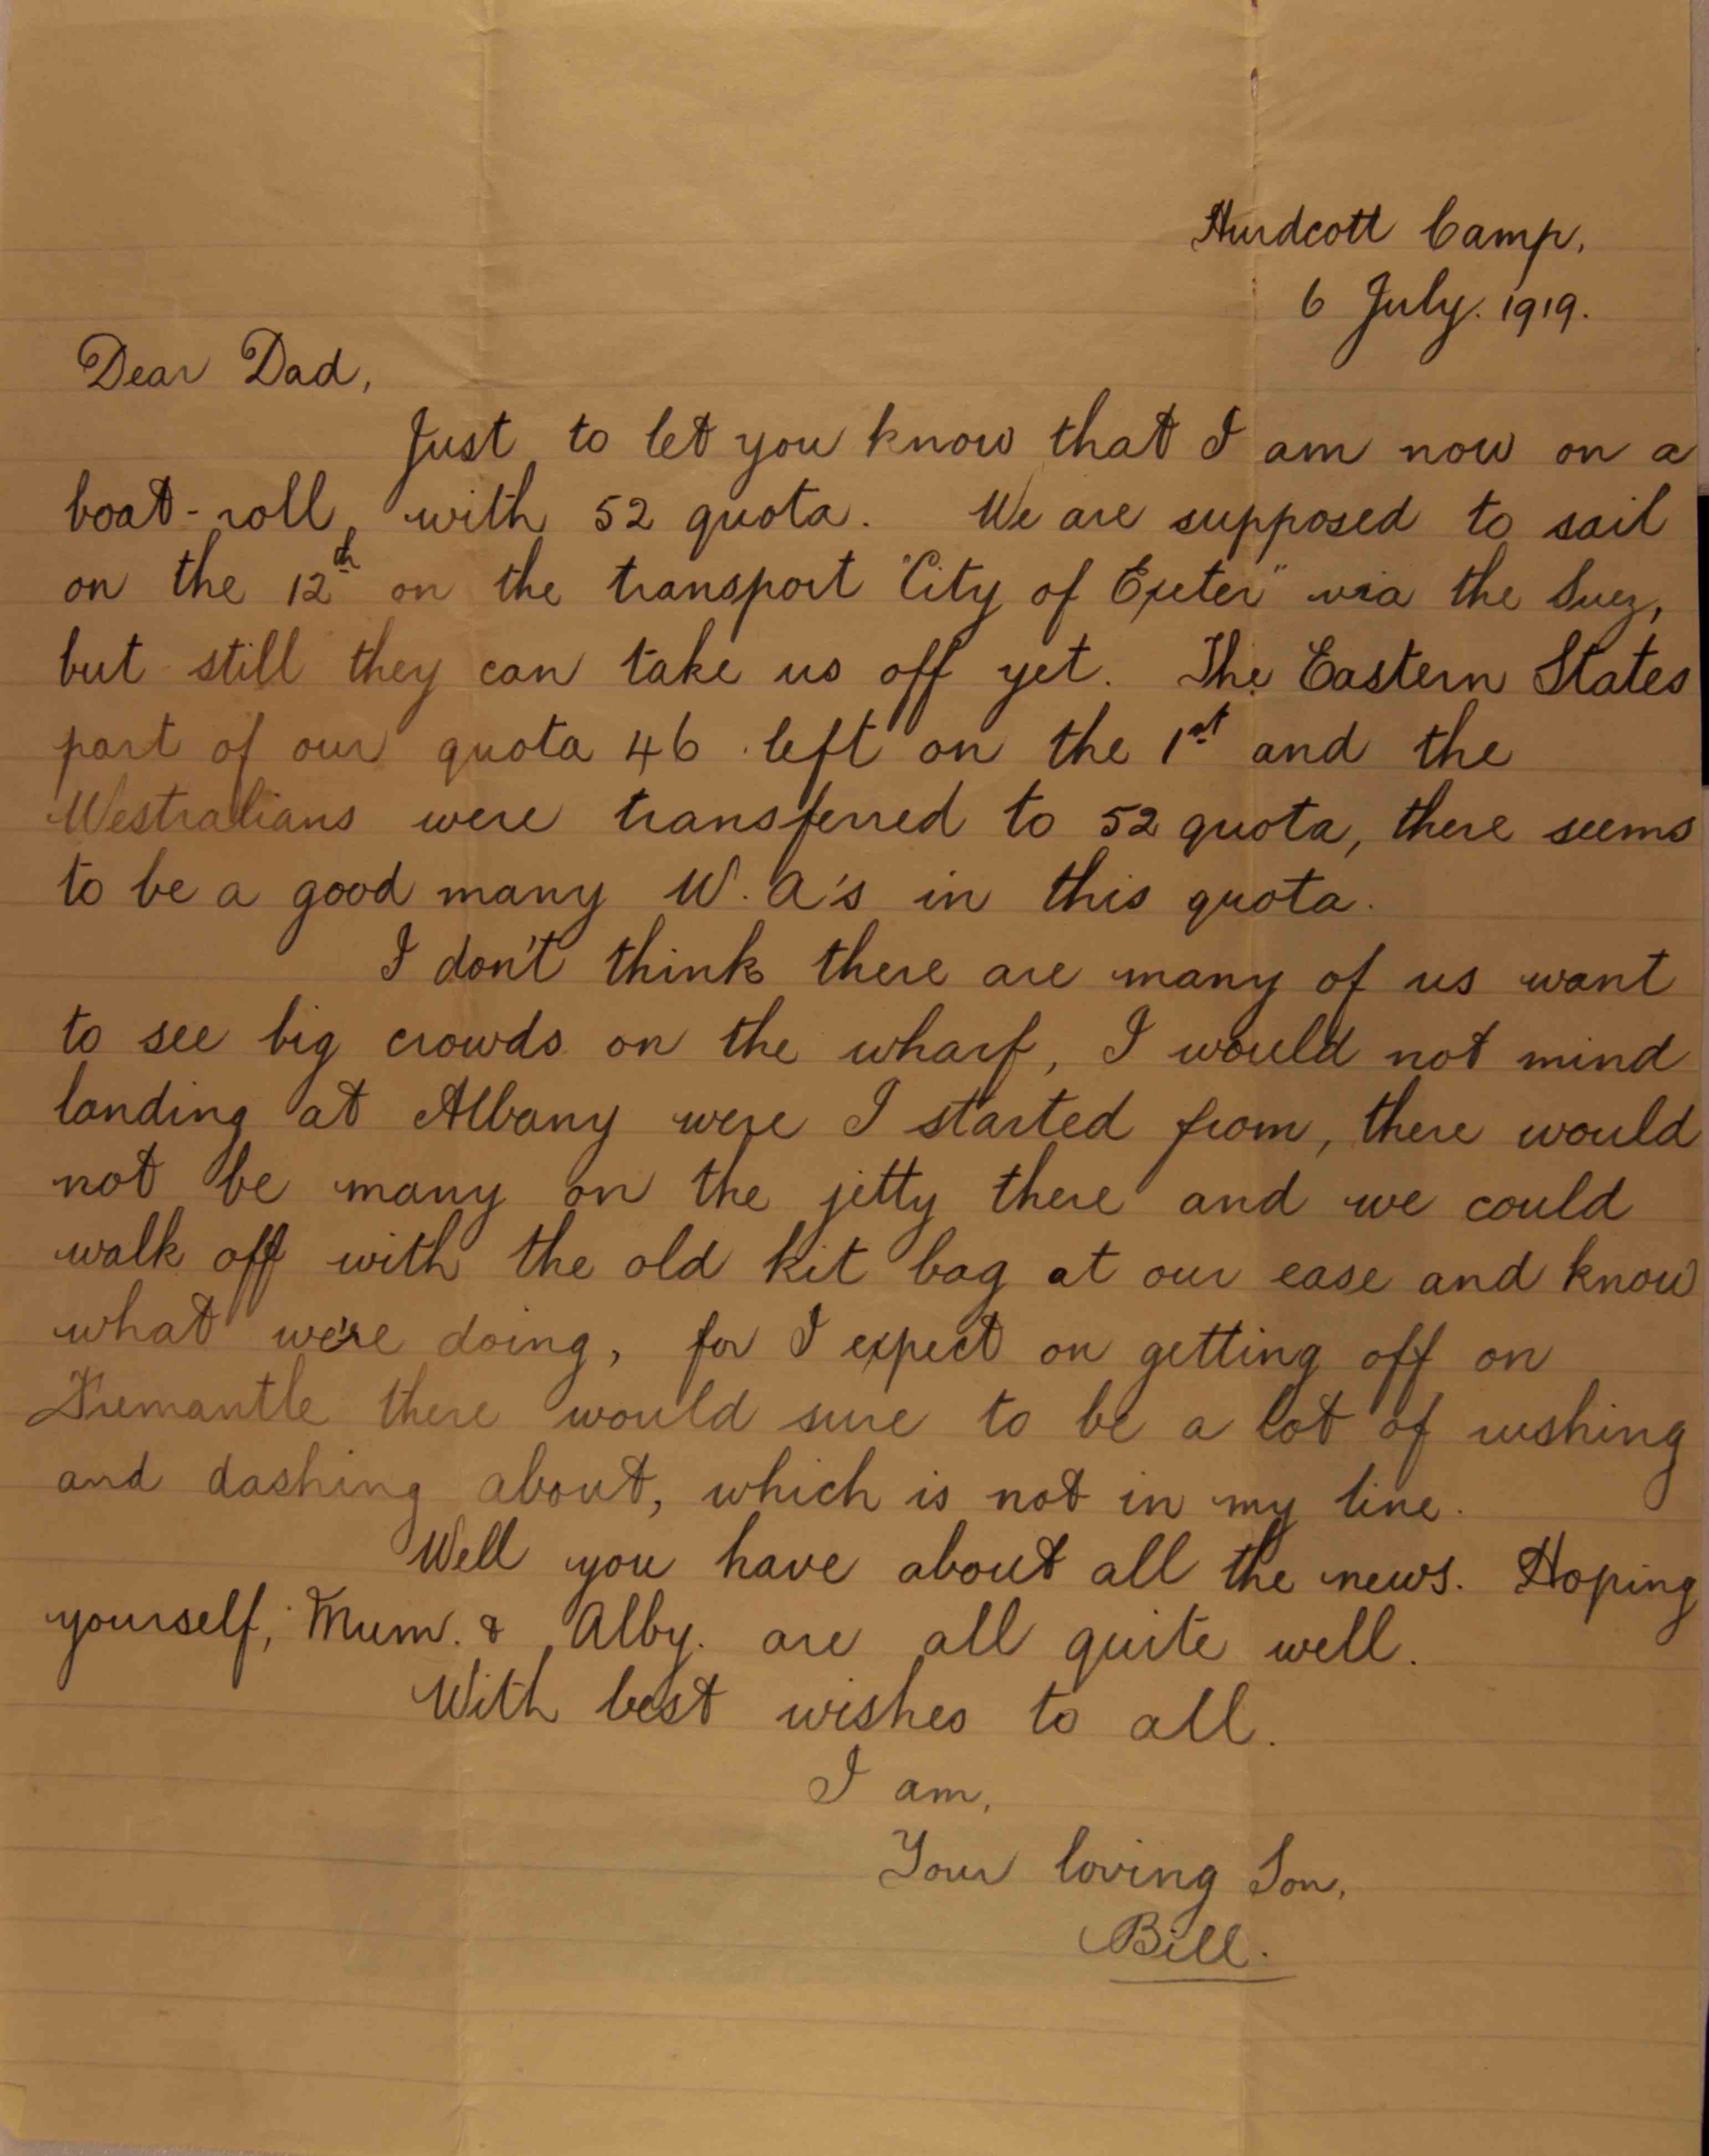 Hurdcott Camp,
6 July. 1919.
Dear Dad,
Just to let you know that I am now on a
boat-roll, with 52 quota. We are supposed to sail
on the 12th on the transport "City of Exeter" via the Suez,
but still they can take us off yet. The Eastern States
part of our quota 46 left on the 1st and the
Westralians were transferred to 52 quota, there seems
to be a good many W.A's in this quota.
I don't think there are many of us want
to see big crowds on the wharf, I would not mind
landing at Albany were I started from, there would
not be many on the jetty there and we could
walk off with the old kit bag at our ease and know
what we're doing, for I expect on getting off on
Fremantle there would sure to be a lot of rushing
and dashing about, which is not in my line.
Well you have about all the news. Hoping
yourself, Mum. & Alby. are all quite well.
With best wishes to all.
I am,
Your loving Son,
Bill.